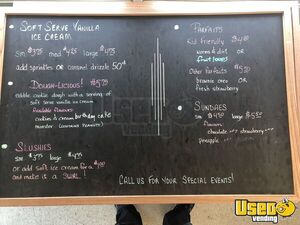 Soft Serve Vanilla
Ice Cream
sm $3.75 med $4.25 large $4.75
add sprinkles or caramel drizzle 50¢
Dough-Licious! $5.75
edible cookie dough with a serving of
soft serve vanilla ice cream
Available flavors
cookies & cream birthday cake
monster (contains peanuts)
Slushies
sm $3.75 large $4.75
or add soft ice cream for a $1.00
and make it a SWIRL!
Parfaits
Kid friendly $4.00
worms & dirt or
fruit loops
Other Parfaits
oreo or
fresh strawberry
Sundaes
sm large
flavors
chocolate strawberry
pineapple
Call us for your special events!
Used
vending